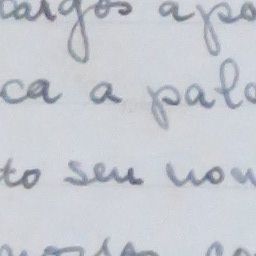 cargos apo
ca a pala
to seu nom